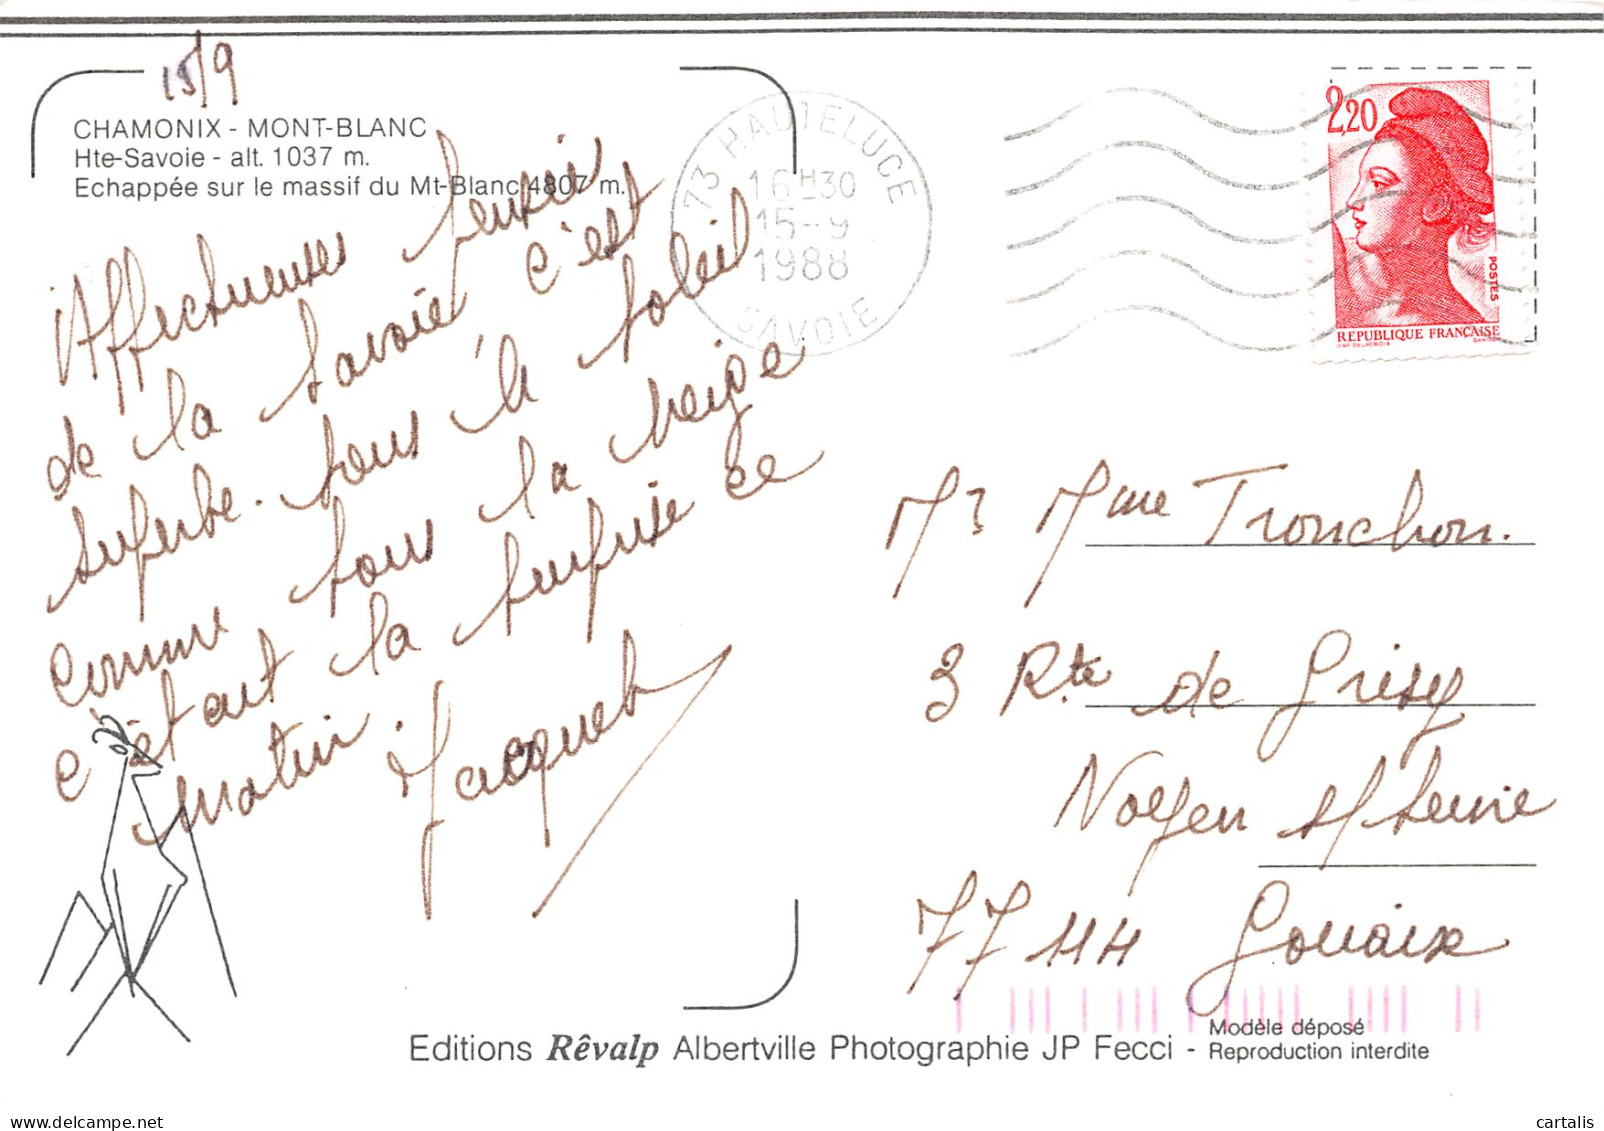 15/9
CHAMONIX - MONT-BLANC
Hte-Savoie - alt. 1037 m.
Echappée sur le massif du Mt-Blanc 4807 m.
Affectueuses pensées
de la Savoie c'est
superbe. sous le soleil
comme sous la neige
c'était la surprise ce
matin
Jacquet
73 HAUTELUCE
16H30
15-9
1988
SAVOIE
2,20
POSTES
REPUBLIQUE FRANÇAISE
Mr Mme Tronchon.
3 Rte de Grisy
Noyen s/ Seine
77114 Gouaix
Editions Rêvalp Albertville Photographie JP Fecci - Modèle déposé
Reproduction interdite
cartalis